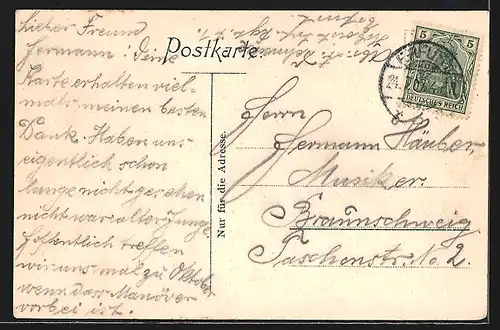 Lieber Freund
Hermann! Deine
Karte erhalten viel-
mals meinen besten
Dank. Haben uns
eigentlich schon
lange nicht gesehen
nicht war alter Junge.
Hoffentlich treffen
wir uns mal zu Oktober
wenn dass Manöver
vorbei ist.
Postkarte.
Nur für die Adresse.
5 5
DEUTSCHES REICH
Herrn
Hermann Häuber,
Musiker.
Braunschweig
Taschenstr. No 2.